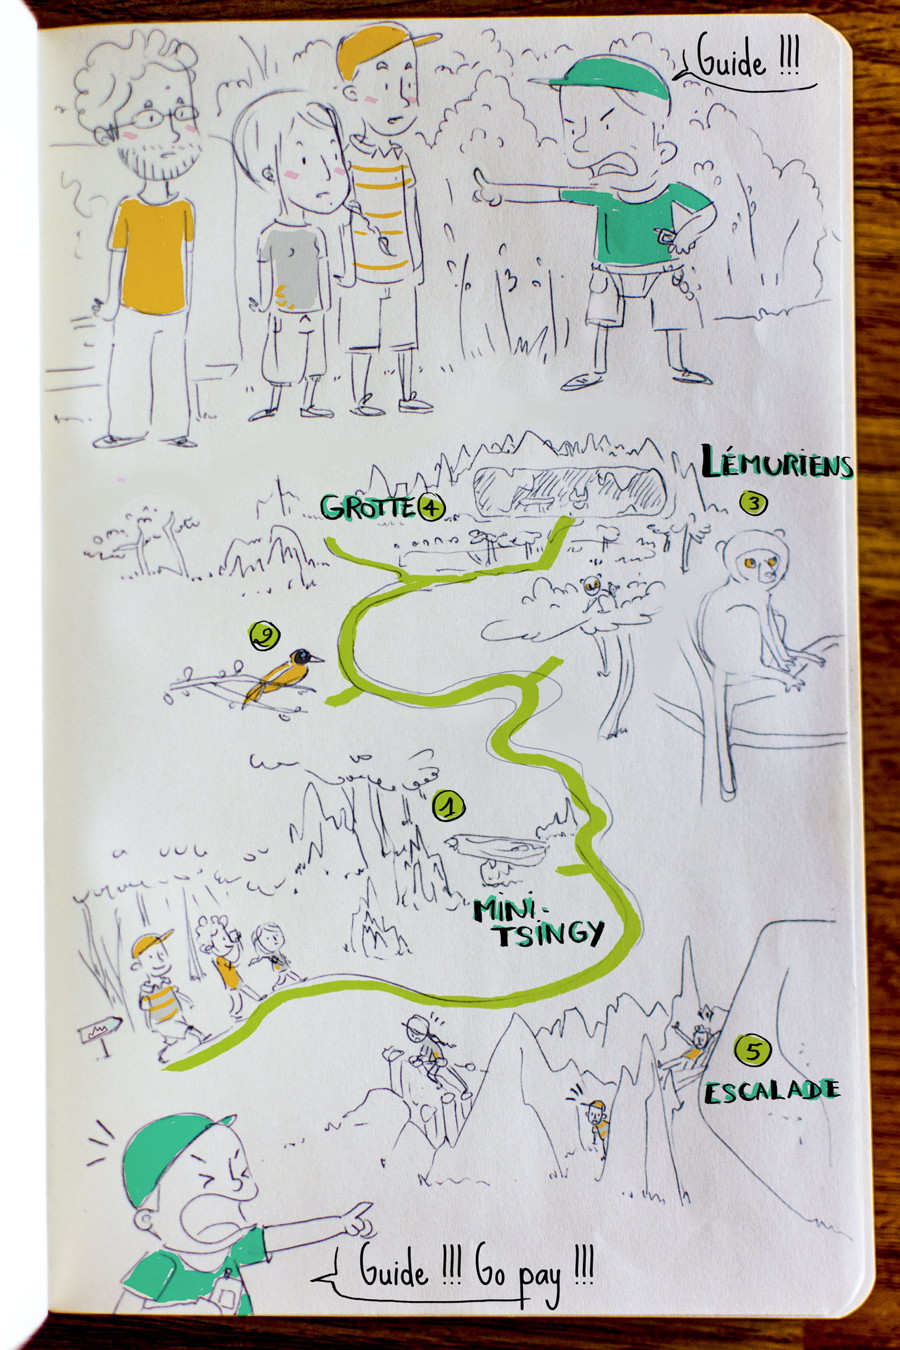 Guide !!!
LÉMURIENS
3
GROTTE 4
2
1
MINI-
TSINGY
5
ESCALADE
Guide !!! Go pay !!!